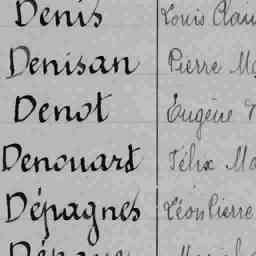 Denis Louis
Denisan Pierre
Denot Eugène
Denouard Félix
Dépagnes Léon Pierre